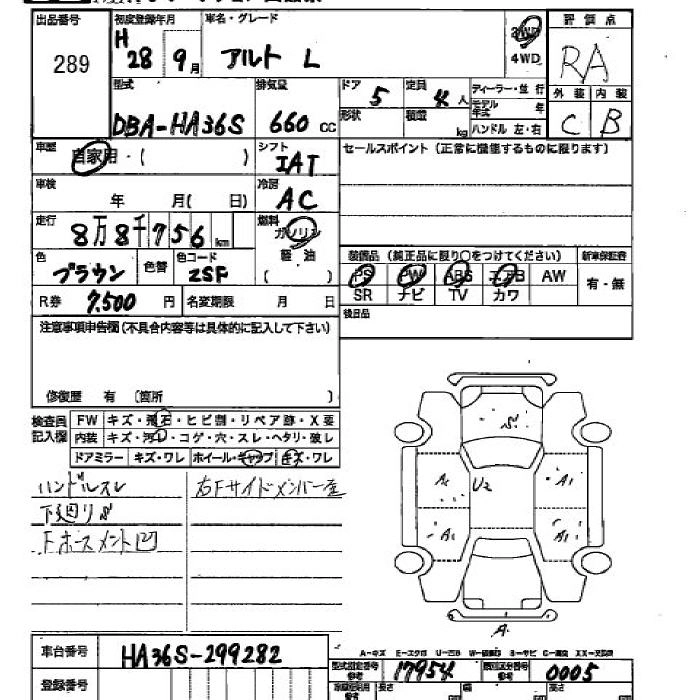 出品番号 初度登録年月 車名・グレード 評価点
289 H 28 9月 アルト L 2WD 4WD RA
型式 排気量 ドア 定員 ディーラー・並行 外装 内装
DBA-HA36S 660cc 5 4人 モデル年式 年 C B
形状 積載 kg ハンドル 左・右
車歴 自家用・( ) シフト IAT セールスポイント(正常に機能するものに限ります)
車検 年 月( 日) 冷房 AC
走行 8万8千756km 燃料 ガソリン
軽油 ( )
色 ブラウン 色替 色コード ZSF 装備品(純正品に限り○をつけてください) 新車保証書
PS PW ABS エアB AW 有・無
R券 7,500円 名変期限 月 日 SR ナビ TV カワ
後日品
注意事項申告欄(不具合内容等は具体的に記入して下さい)
修復歴 有 (箇所 )
検査員記入欄 FW キズ・飛石・ヒビ割・リペア跡・X要
内装 キズ・汚れ・コゲ・穴・スレ・ヘタリ・破レ
ドアミラー キズ・ワレ ホイール・キャップ キズ・ワレ
ハンドルスレ 右Fサイドメンバー歪
下廻りS
Fホースメント凹
S
A1 U2 A1
A1 A1
A
車台番号 HA36S-299282
A-キズ E-エクボ U-凹み
型式指定番号 参考 17954 類別区分番号 参考 0005
登録番号 長さ